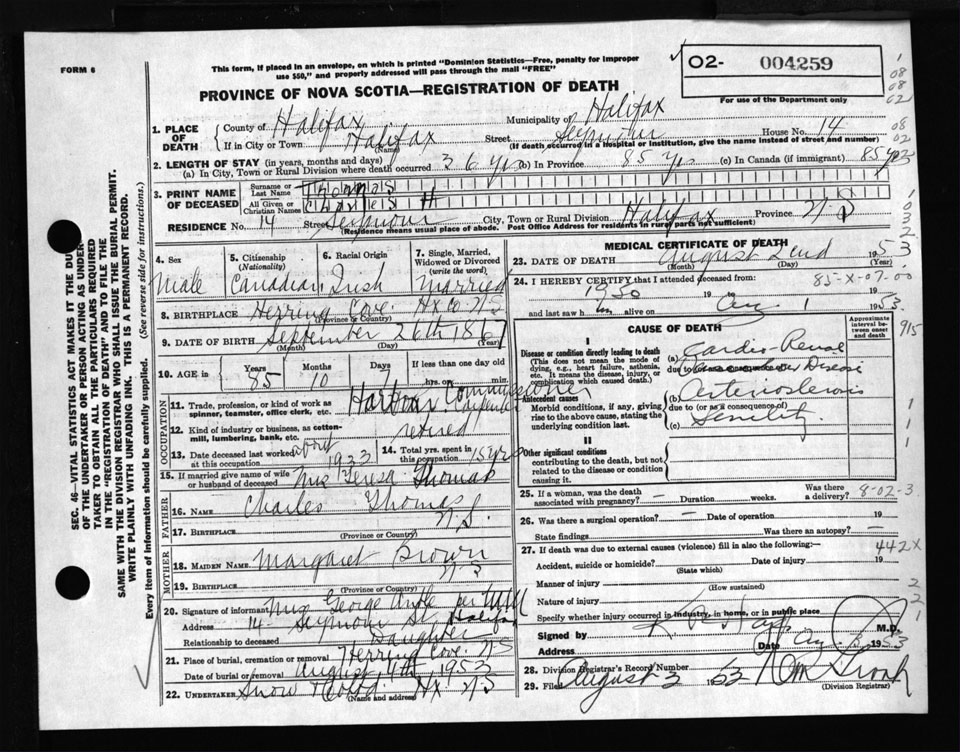 FORM 6
This form, if placed in an envelope, on which is printed "Dominion Statistics—Free, penalty for improper
use $50," and properly addressed will pass through the mail "FREE"
PROVINCE OF NOVA SCOTIA—REGISTRATION OF DEATH
O2- 004259
For use of the Department only
1. PLACE OF DEATH
County of Halifax Municipality of Halifax
If in City or Town Halifax Street Seymour House No. 14
(Name) (If death occurred in a hospital or institution, give the name instead of street and number)
2. LENGTH OF STAY (in years, months and days)
(a) In City, Town or Rural Division where death occurred 36 yrs (b) In Province 85 yrs (c) In Canada (if immigrant) 85 yrs
3. PRINT NAME OF DECEASED
Surname or Last Name Thomas
All Given or Christian Names Charles H
RESIDENCE No. 14 Street Seymour City, Town or Rural Division Halifax Province N.S
(Residence means usual place of abode. Post Office Address for residents in rural parts not sufficient)
4. Sex Male
5. Citizenship (Nationality) Canadian
6. Racial Origin Irish
7. Single, Married, Widowed or Divorced (write the word) Married
8. BIRTHPLACE Herring Cove Hx Co. N.S
(Province or Country)
9. DATE OF BIRTH September 26th 1867
(Month) (Day) (Year)
10. AGE in Years 85 Months 10 Days 7 If less than one day hrs. or min.
OCCUPATION
11. Trade, profession, or kind of work as spinner, teamster, office clerk, etc. Harbour Commissioners Carpenter
12. Kind of industry or business, as cotton-mill, lumbering, bank, etc. retired
13. Date deceased last worked at this occupation about 1933
14. Total yrs. spent in this occupation 15 yrs
15. If married give name of wife or husband of deceased Mrs Teresa Thomas
FATHER
16. NAME Charles Thomas
17. BIRTHPLACE N.S.
(Province or Country)
MOTHER
18. MAIDEN NAME Margaret Brown
19. BIRTHPLACE N S
(Province or Country)
20. Signature of informant Mrs George per
Address 14 Seymour St Halifax
Relationship to deceased Daughter
21. Place of burial, cremation or removal Herring Cove N.S
Date of burial or removal August 4th 1953
22. UNDERTAKER Snow & Co Ltd Hx N.S
(Name and address)
MEDICAL CERTIFICATE OF DEATH
23. DATE OF DEATH August 2nd 1953
(Month) (Day) (Year)
24. I HEREBY CERTIFY that I attended deceased from: 85-X-07-00
1950 19 19
and last saw h im alive on Aug 1 1953
CAUSE OF DEATH
Approximate interval between onset and death
I
Disease or condition directly leading to death
(This does not mean the mode of dying, e.g., heart failure, asthenia, etc. It means the disease, injury, or complication which caused death.)
(a) Cardio-Renal
due to (or as a consequence of) Disease
Antecedent causes
Morbid conditions, if any, giving rise to the above cause, stating the underlying condition last.
(b) Arteriosclerosis
due to (or as a consequence of)
(c) Senility
II
Other significant conditions
contributing to the death, but not related to the disease or condition causing it.
25. If a woman, was the death associated with pregnancy? — Duration weeks. Was there a delivery? 8-02-3
26. Was there a surgical operation? — Date of operation 19
State findings Was there an autopsy? —
27. If death was due to external causes (violence) fill in also the following:— 442X
Accident, suicide or homicide? Date of injury 19
(State which)
Manner of injury
(How sustained)
Nature of injury
Specify whether injury occurred in industry, in home, or in public place
Signed by M.D.
Address Date Aug 1953
28. Division Registrar's Record Number
29. Filed August 3 1953
(Division Registrar)
SEC. 46—VITAL STATISTICS ACT MAKES IT THE DUTY
OF THE UNDERTAKER OR PERSON ACTING AS UNDER-
TAKER TO OBTAIN ALL THE PARTICULARS REQUIRED
IN THE "REGISTRATION OF DEATH" AND TO FILE THE
SAME WITH THE DIVISION REGISTRAR WHO SHALL ISSUE THE BURIAL PERMIT.
WRITE PLAINLY WITH UNFADING INK. THIS IS A PERMANENT RECORD.
Every item of information should be carefully supplied. (See reverse side for instructions.)